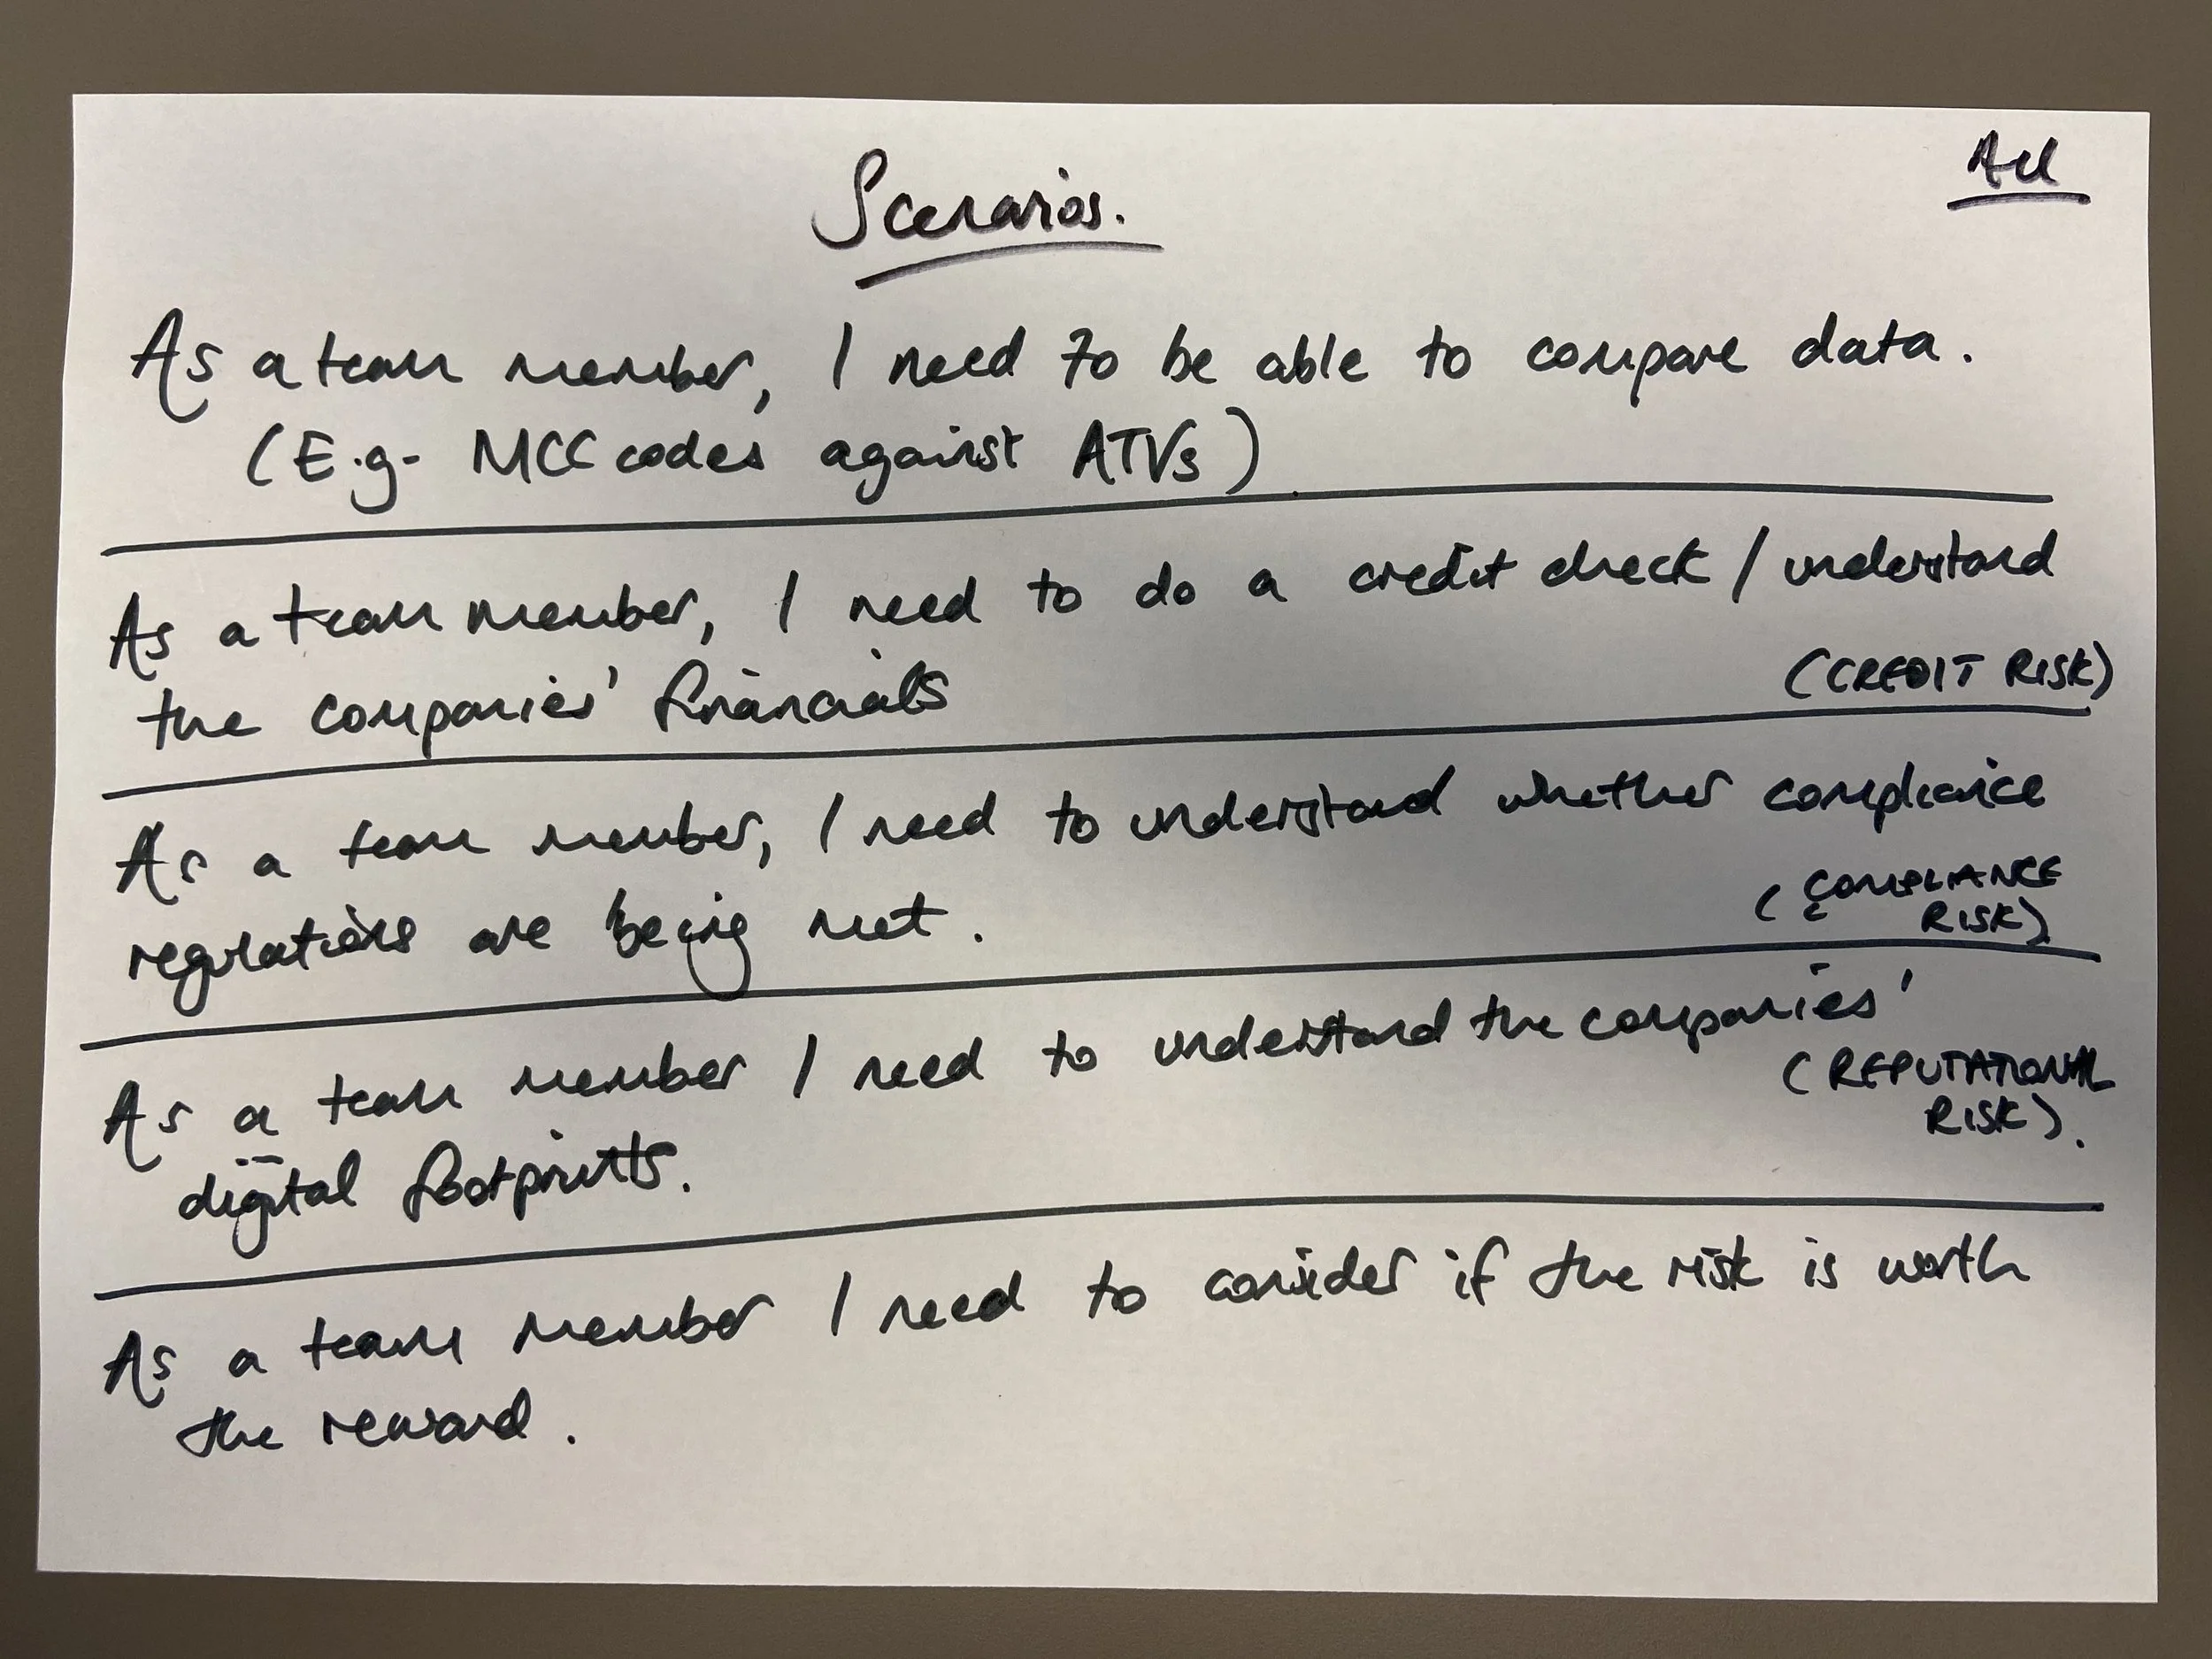 Scenarios.
All
As a team member, I need to be able to compare data.
(E.g. MCC codes against ATVs)
As a team member, I need to do a credit check / understand
the companies' financials
(CREDIT RISK)
As a team member, I need to understand whether compliance
regulations are being met.
(COMPLIANCE
RISK)
As a team member I need to understand the companies'
digital footprints.
(REPUTATIONAL
RISK).
As a team member I need to consider if the risk is worth
the reward.